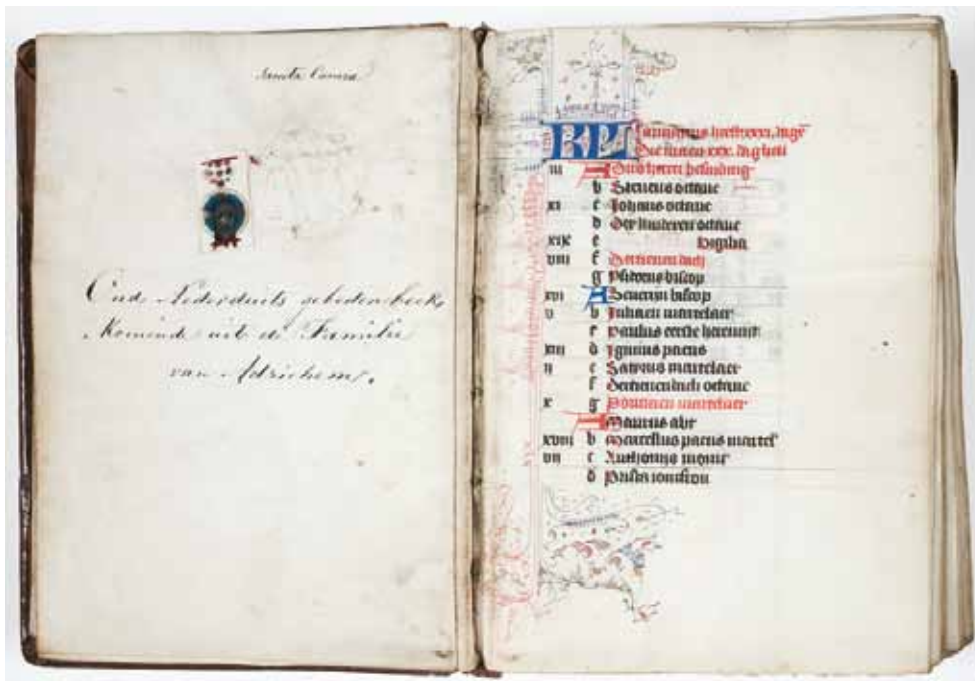 Oude Nederduits gebedenboek,
Komende uit de Familie
van Adrichem.
KL Januarius heeft xxxi. dage
Die maen xxx. dagheli
iii A Ons heren besnidinge
b Steuens octaue
xi c Johannis octaue
d Der kinderen octaue
xix e Vigilia
viii f Dertienen dach
g biscop
xvi A Seuerijn biscop
v b Juliaen martelaer
c Paulus eerste heremijt
xiii d paeus
ii e Satyrus martelaer
f Dertiendach octaue
x g Ponciaen martelaer
A Maurus abt
xviii b Marcellus paeus martel
vii c Anthonijs monic
d Prisca ioncfrou